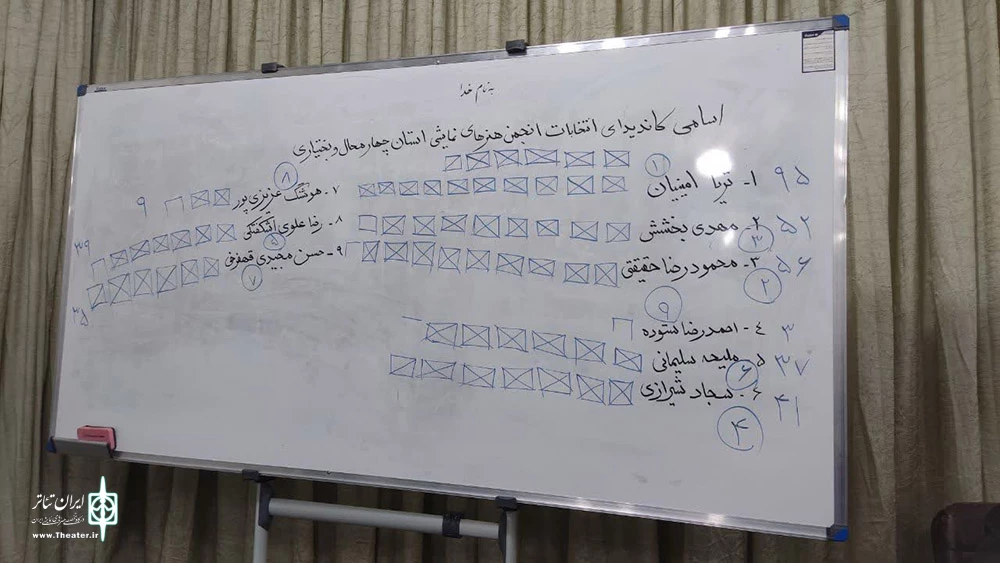 به نام خدا
اسامی کاندیدای انتخابات انجمن هنرهای نمایشی استان چهارمحال و بختیاری
۱- ثریا امینیان ۹۵
۱
۲- مهدی بخشش ۵۲
۳
۳- محمودرضا حقیقی ۵۶
۲
۴- احمدرضا ستوده ۳
۹
۵- ملیحه سلیمانی ۳۷
۶
۶- سجاد شیرازی ۴۱
۴
۷- هوشنگ عزیزی پور ۹
۸
۸- رضا علوی اشکفتکی ۳۹
۵
۹- حسن مجیدی قهفرخی ۳۵
۷
ایران تئاتر
www.Theater.ir